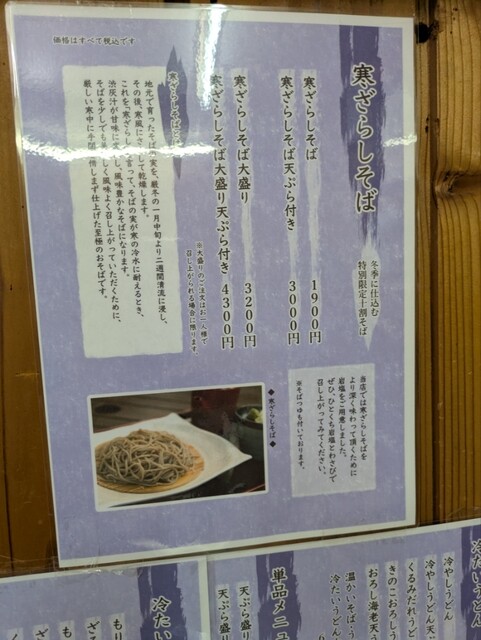 価格はすべて税込です
寒ざらしそば
冬季に仕込む
特別限定十割そば
寒ざらしそば 1900円
寒ざらしそば天ぷら付き 3000円
寒ざらしそば大盛り 3200円
寒ざらしそば大盛り天ぷら付き 4300円
※大盛りのご注文はお一人様で
召し上がられる場合に限ります。
寒ざらしそば
地元で育ったそばの実を、厳冬の一月中旬より二週間清流に浸し、
その後、寒風にさらして乾燥します。
これを「寒ざらし」と言って、そばの実が寒の冷水に耐えるとき、
渋灰汁が甘味に変化し、風味豊かなそばになります。
そばを少しでも美味しく風味よく召し上がっていただくために、
厳しい寒中に手間暇惜しまず仕上げた至極のおそばです。
当店では寒ざらしそばを
より深く味わって頂くために
岩塩をご用意しました。
ぜひ、ひとくち岩塩とわさびで
召し上がってみてください。
※そばつゆも付いております。
◆寒ざらしそば◆
冷たいうどん
冷やしうどん
冷やしうどん天
くるみだれうど
きのこおろし
おろし海老天
温かいそば・う
冷たいうどん
単品メニュ
天ぷら盛り
天ぷら盛
冷たい
もり
ざ
も
ざ
く